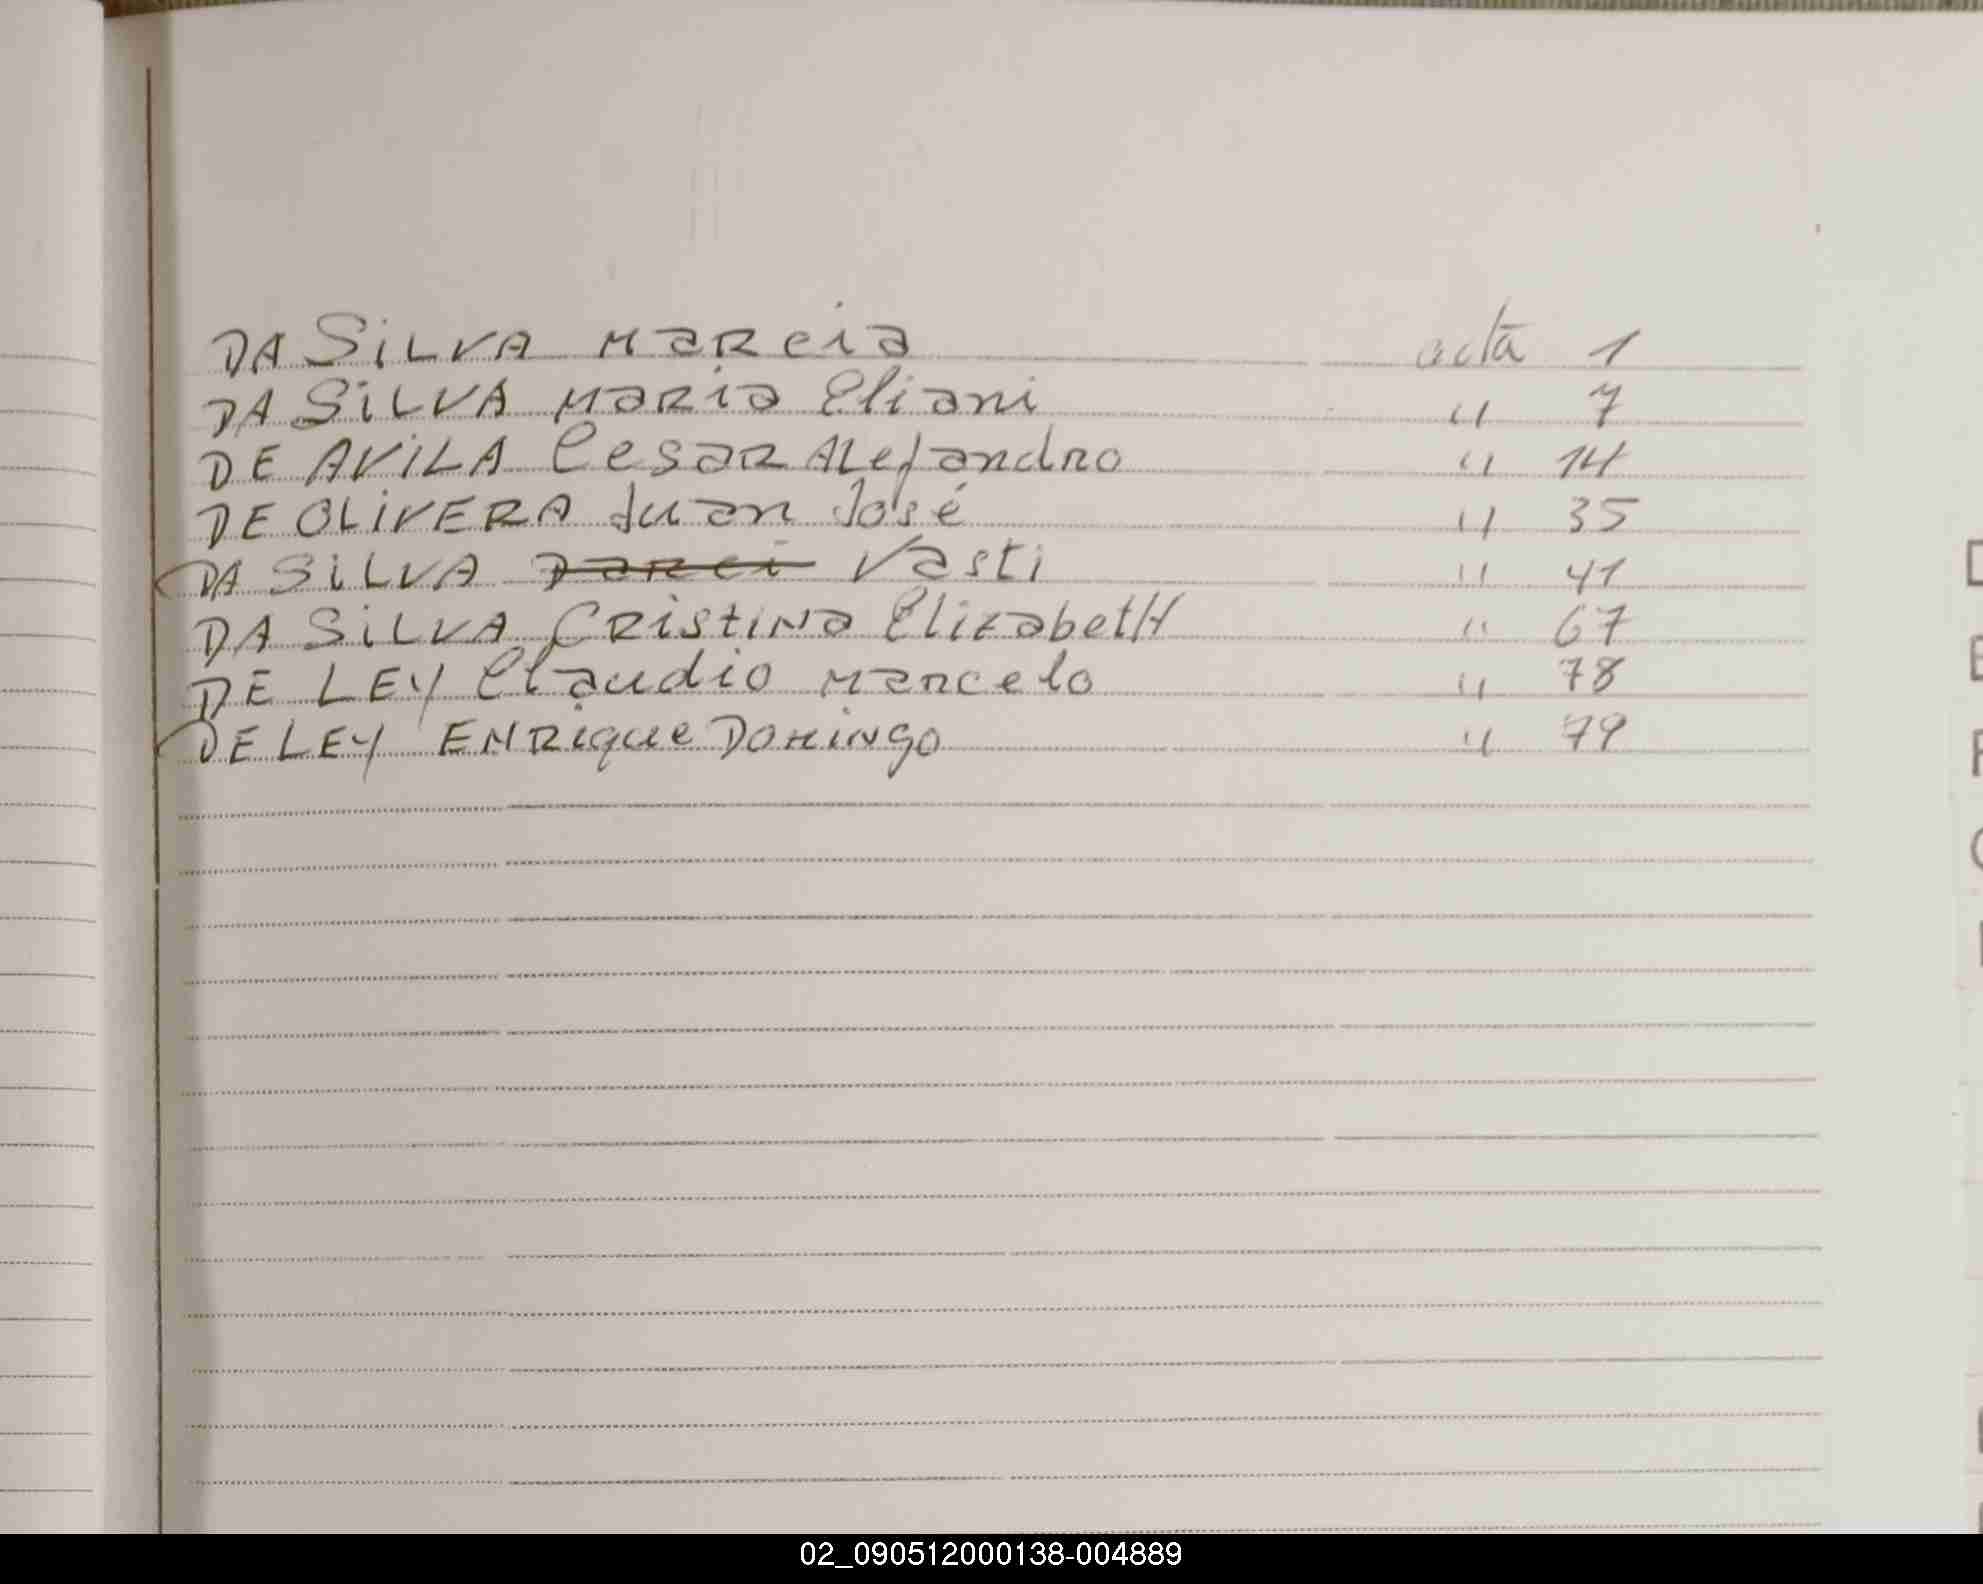 DA SiLVA MaRcia acta 1
DA SiLVA MaRia Eliani " 7
DE AViLA Cesar Alejandro " 14
DE OLiVERA Juan José " 35
DA SiLVA Darci Vasti " 41
DA SiLVA CRistina ElizabetH " 67
DE LEY Claudio Marcelo " 78
DE LEY ENRique DOMiNgo " 79
02_090512000138-004889